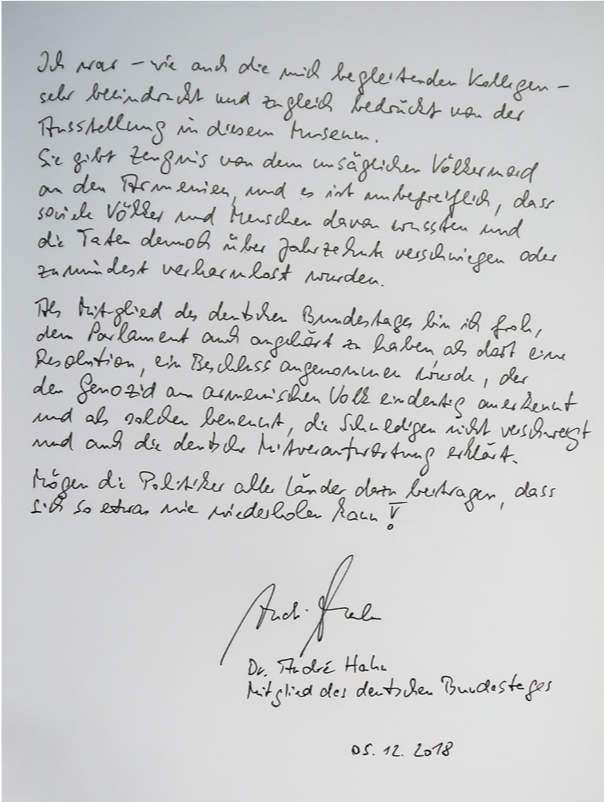 Ich war – wie auch die mich begleitenden Kollegen –
sehr beeindruckt und zugleich bedrückt von der
Ausstellung in diesem Museum.
Sie gibt Zeugnis von dem unsäglichen Völkermord
an den Armenien, und es ist unbegreiflich, dass
soviele Völker und Menschen davon wussten und
die Taten dennoch über Jahrzehnte verschwiegen oder
zumindest verharmlost wurden.
Als Mitglied des deutschen Bundestages bin ich froh,
dem Parlament auch angehört zu haben als dort eine
Resolution, ein Beschluss angenommen wurde, der
den Genozid am armenischen Volk eindeutig anerkennt
und als solchen benennt, die Schuldigen nicht verschweigt
und auch die deutsche Mitverantwortung erklärt.
Mögen die Politiker aller Länder dazu beitragen, dass
sich so etwas nie wiederholen kann!
Dr. André Hahn
Mitglied des deutschen Bundestages
05.12.2018